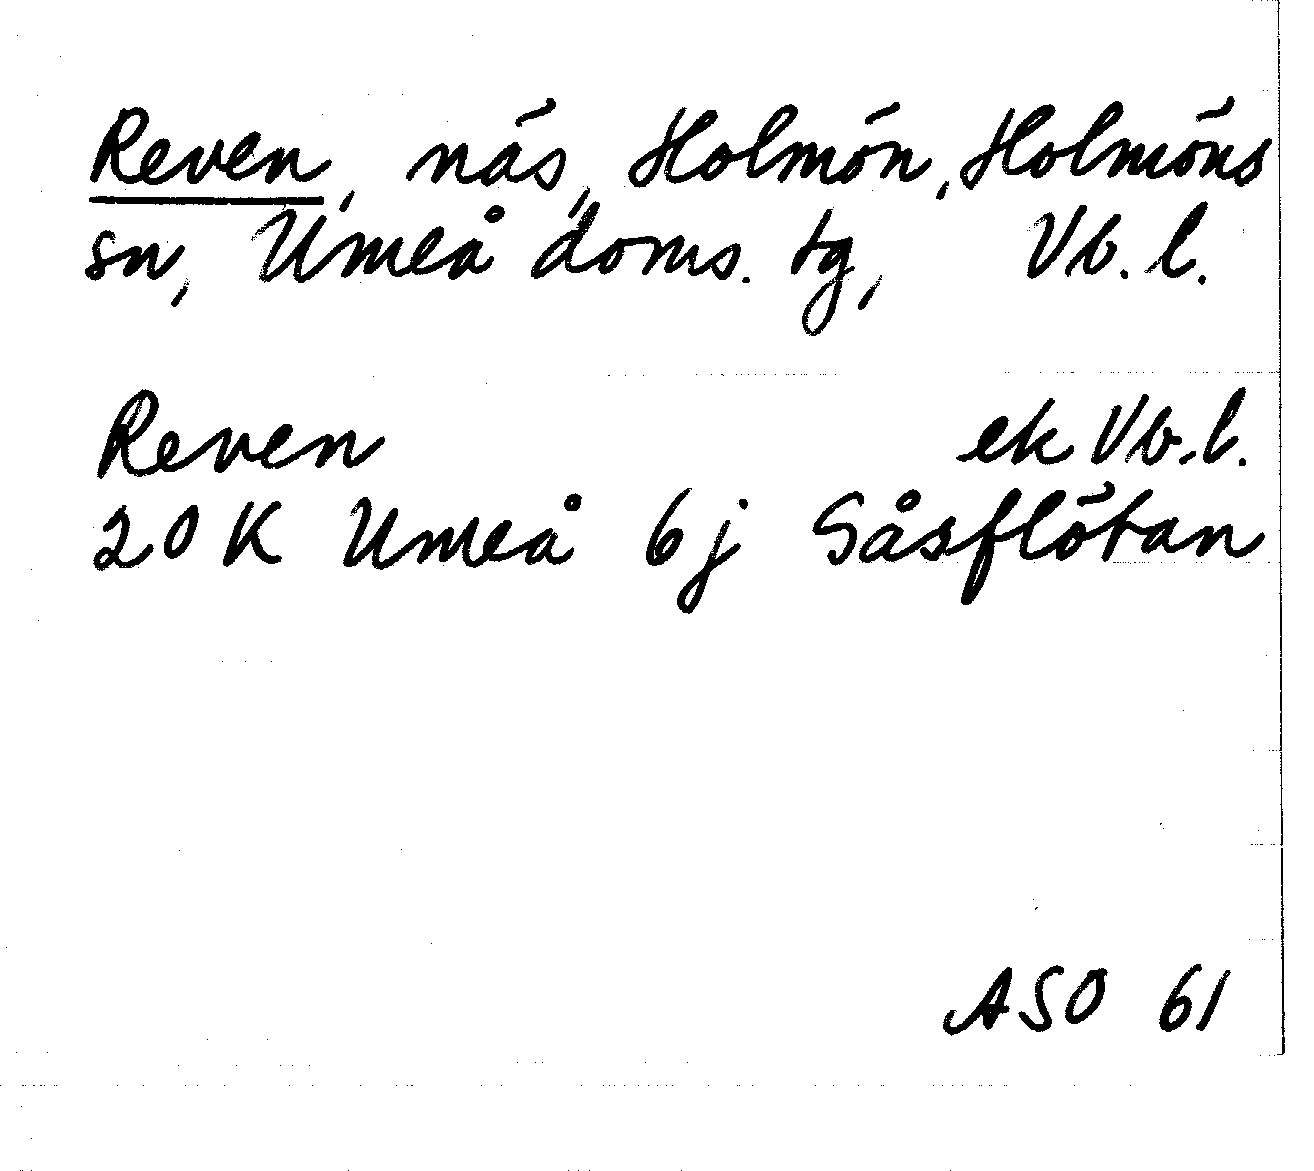 Reven, näs, Holmön, Holmöns
sn, Umeå doms. tg, Vb. l.
Reven ek Vb. l.
20 K Umeå 6j Såsflötan
ASO 61